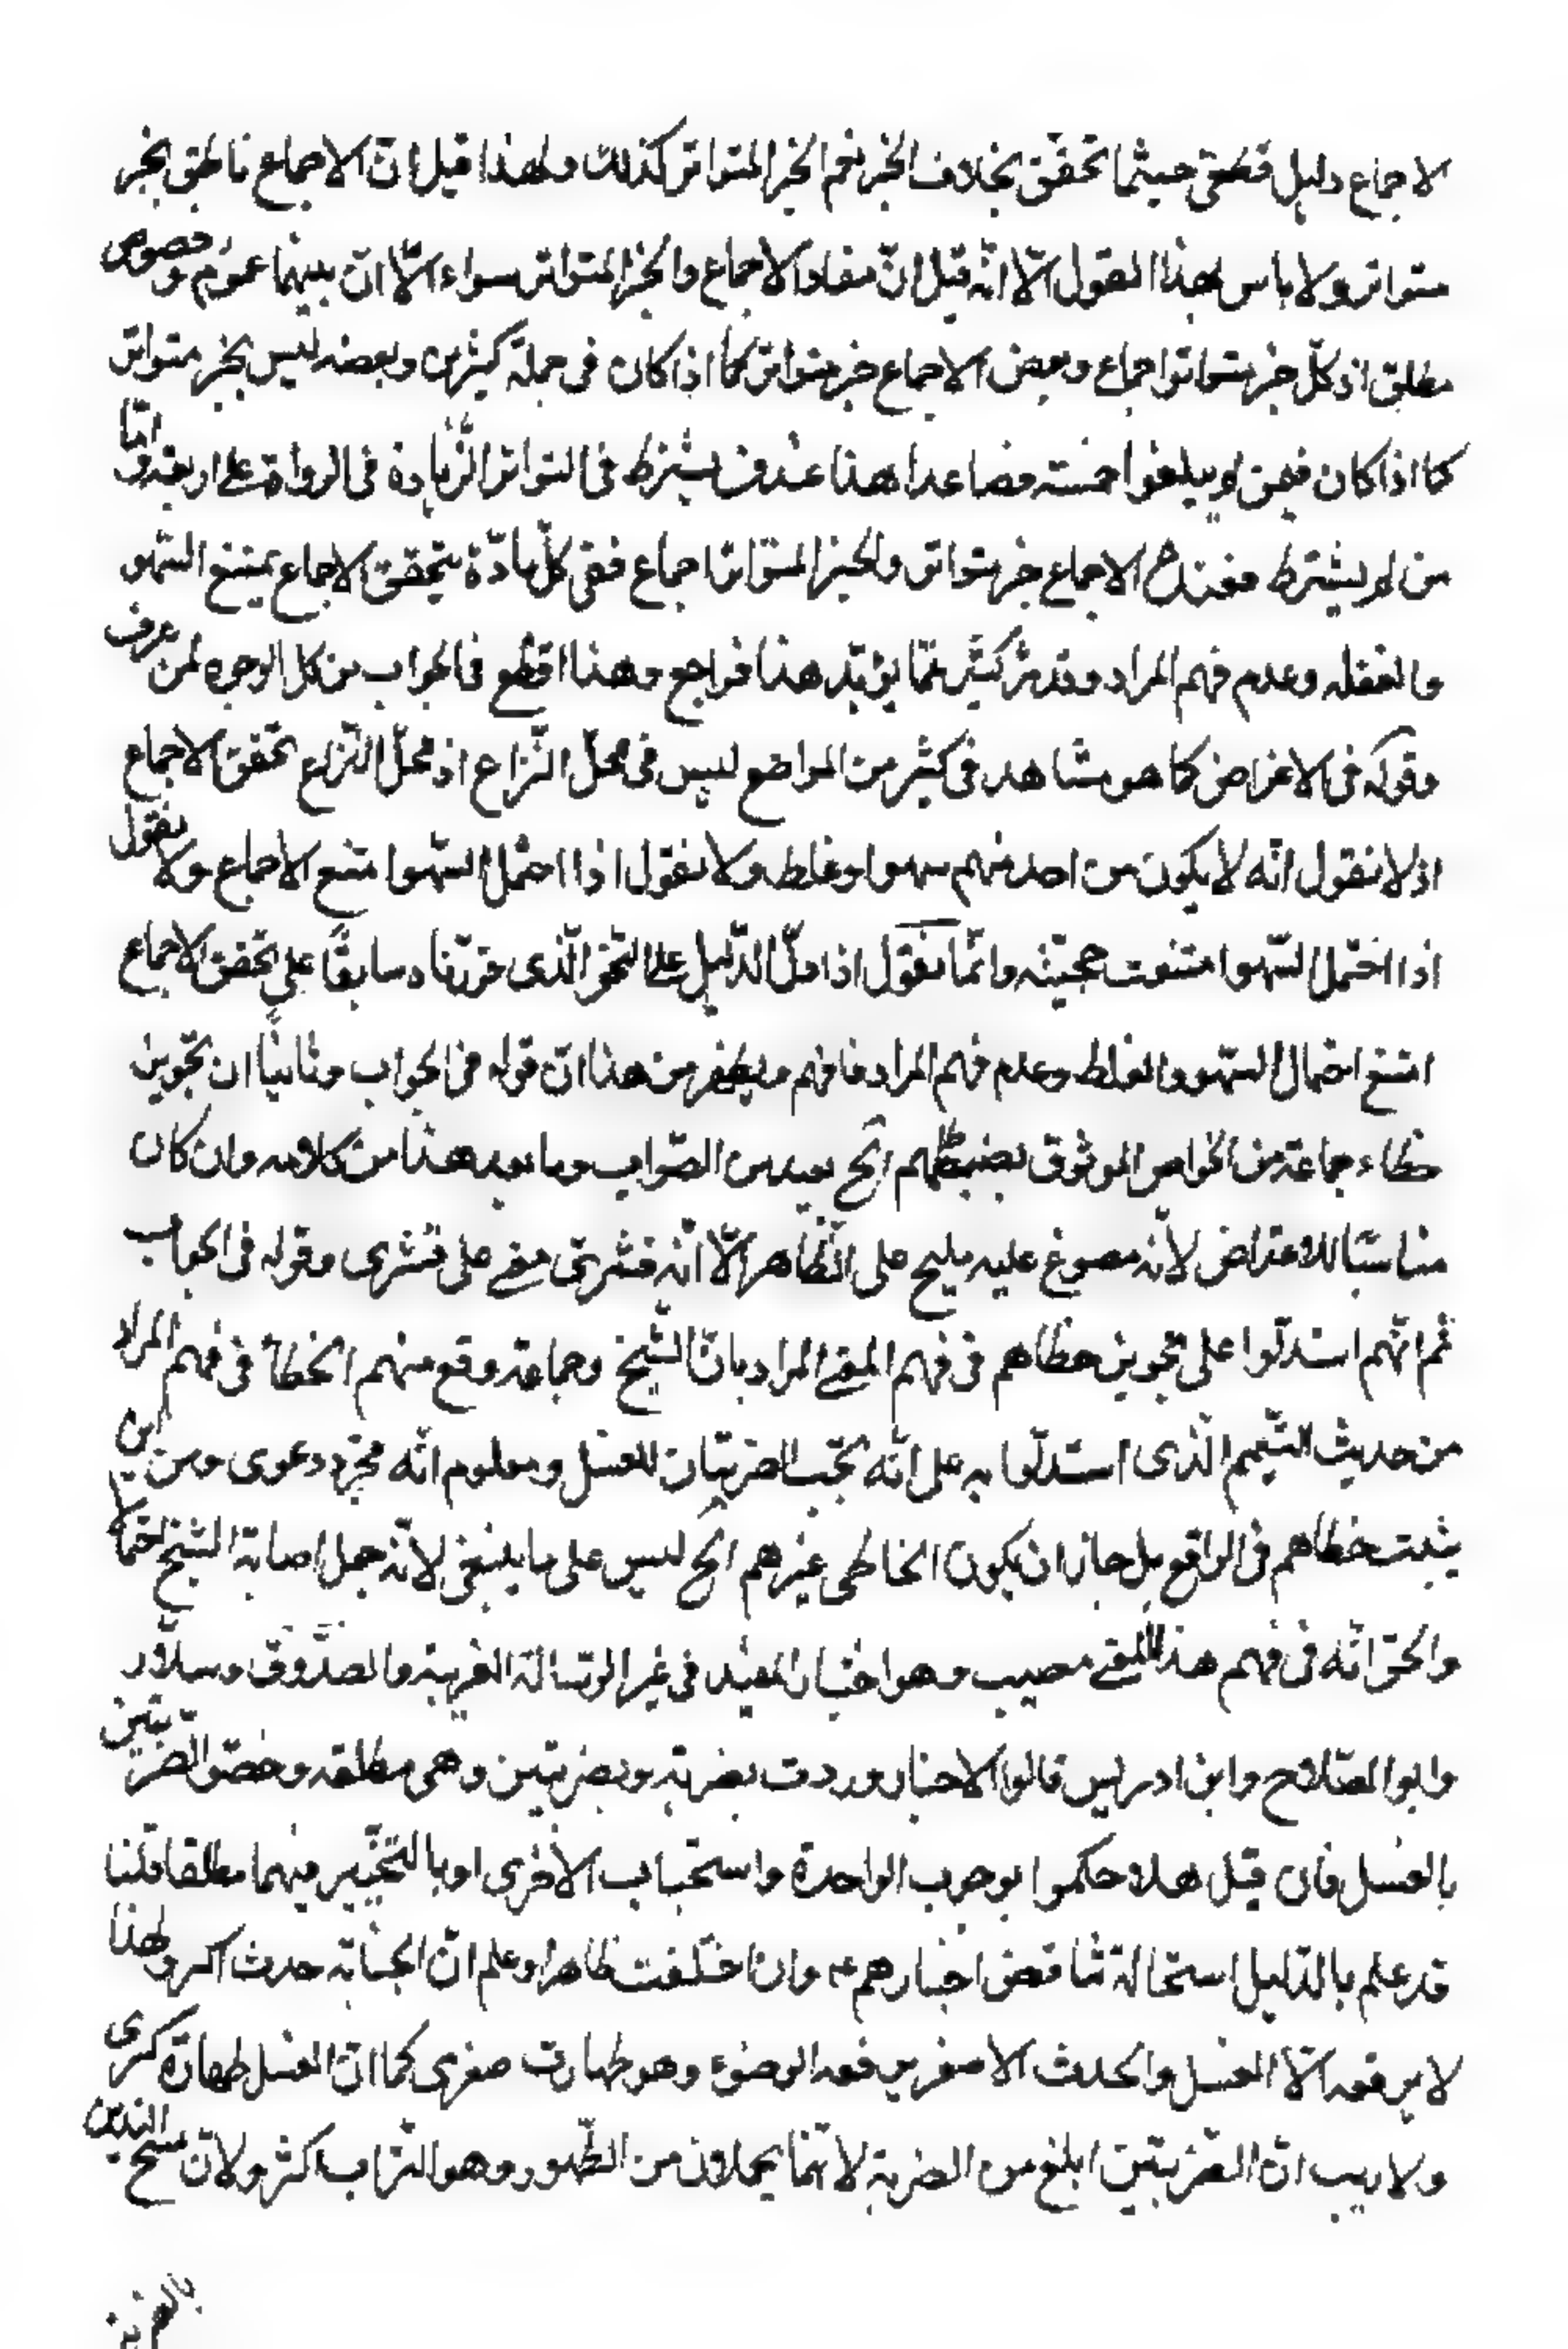 لاجماع دليل قطعى حيثما تحقّق بخلاف الخبر نعم الخبر المتواتر كذلك ولهذا قيل انّ الاجماع ناطق بخبر
متواتر ولا باس بهذا القول الّا انّه قيل انّ مفاد الاجماع والخبر المتواتر سواء الّا انّ بينهما عموم وخصوص
مطلق اذ كلّ خبر متواتر اجماع وبعض الاجماع خبر متواتر كما اذا كان فى جملة كثيرين وبعضه ليس بخبر متواتر
كما اذا كان فيمن لم يبلغوا خمسته فصاعدا هذا عند من يشترط فى التواتر الزّيادة فى الرواة على اربعة وامّا
من لم يشترط فعنده الاجماع خبر متواتر والخبر المتواتر اجماع ففى كلّ مادّة يتحقق الاجماع يمتنع السّهو
والغفله وعدم فهم المراد وقد مرّ كثير ممّا يؤيّد هذا فراجع وهذا اقطع فالجواب من كل الوجوه لمن عرف
وقوله فى الاعراض كما هو مشاهد فى كثير من المواضع ليس فى محلّ النّزاع اذ محلّ النّزاع تحقق الاجماع
اذ لا نقول انّه لا يكون من احد منهم سهو او غلط ولا نقول اذا احتمل السّهو امتنع الاجماع ولا نقول
اذا احتمل السّهو امتنعت حجيّته وانّما نقول اذا دلّ الدّليل على النّحو الّذى قررناه سابقًا على تحقق الاجماع
امتنع احتمال السّهو والغلط وعدم فهم المراد فافهم ويظهر من هذا انّ قوله فى الجواب وثانيًا ان تجويز
خطاء جماعة من الخواص الموثوق بضبطهم الخ بعيد من الصّواب وما بعد هذا من كلامه وان كان
مناسبًا للاعتراض لأنّه مصوغ عليه مليح على الظّاهر الّا انّه قشرىّ مبنى على قشرى وقوله فى الجواب
ثم انّهم استدلّوا على تجويز خطاهم فى فهم المعنى المراد بانّ الشّيخ وجماعة وقع منهم الخطأ فى فهم المراد
من حديث التّيمم الّذى استدلّوا به على انّه تجب الضربتان للغسل ومعلوم انّه مجرّد دعوى ومن اين
يثبت خطاهم فى الواقع بل جاز ان يكون الخاطى غيرهم الخ ليس على ما ينبغى لانّه جعل اصابة الشيخ احتمالا
والحق انّه فى فهم هذا المعنى مصيب وهو اختيار المفيد فى غير الرّسالة الغرية والصّدوق وسلّار
وابو الصّلاح وابن ادريس قالوا الاخبار وردت بضربة وبضربتين وهى مطلقه وخصّوا الضّربتين
بالغسل فان قيل هلا حكموا بوجوب الواحدة واستحباب الأخرى او بالتخيير بينهما مطلقا قلنا
قد علم بالدّليل استحالة تناقض اخبارهم ع وان اختلفت ظاهرا وعلم انّ الجنابة حدث اكبر ولهذا
لا يرفعه الّا الغسل والحدث الاصغر يرفعه الوضوء وهو طهارت صغرى كما انّ الغسل طهارة كبرى
ولا ريب انّ الضّربتين ابلغ من الضربة لانّهما يحملان من الطّهور وهو التّراب اكثر ولانّ مسح اليدين